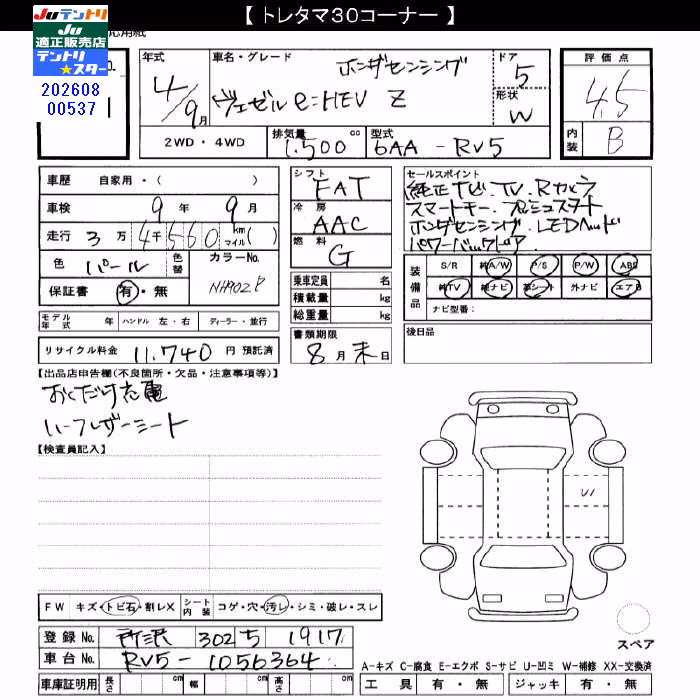 【 トレタマ30コーナー 】
Juテントリ
Ju
適正販売店
テントリ
★スター
202608
00537
年式
4/9月
車名・グレード
ホンダセンシング
ヴェゼル e:HEV Z
ドア
5
形状
W
評価点
4.5
内装
B
2WD・4WD
排気量
1.500 cc
型式
6AA - RV5
車歴 自家用・( )
車検 9年 9月
走行 3万4560 km マイル( )
色 パール
色替
カラーNo.
NH902P
保証書 有・無
モデル年式 年 ハンドル 左・右 ディーラー・並行
リサイクル料金 11.740 円 預託済
シフト
FAT
冷房
AAC
燃料
G
乗車定員 名
積載量 kg
総重量 kg
書類期限
8月末日
セールスポイント
純正ナビ.TV.Rカメラ
スマートキー.プッシュスタート
ホンダセンシング.LEDヘッド
パワーバックドア.
装備品
S/R 純A/W P/S P/W ABS
純TV 純ナビ 革シート 外ナビ エアB
ナビ型番:
後日品
【出品店申告欄(不良箇所・欠品・注意事項等)】
おくだけ充電
ハーフレザーシート
【検査員記入】
U
FW キズ・トビ石・割レX
シート内装 コゲ・穴・汚レ・シミ・破レ・スレ
登録No. 所沢 302 ち 1917
車台No. RV5-1056364
車庫証明用 長さ cm 幅 cm 高さ cm
スペア
A-キズ C-腐食 E-エクボ S-サビ U-凹ミ W-補修 XX-交換済
工具 有・無 ジャッキ 有・無